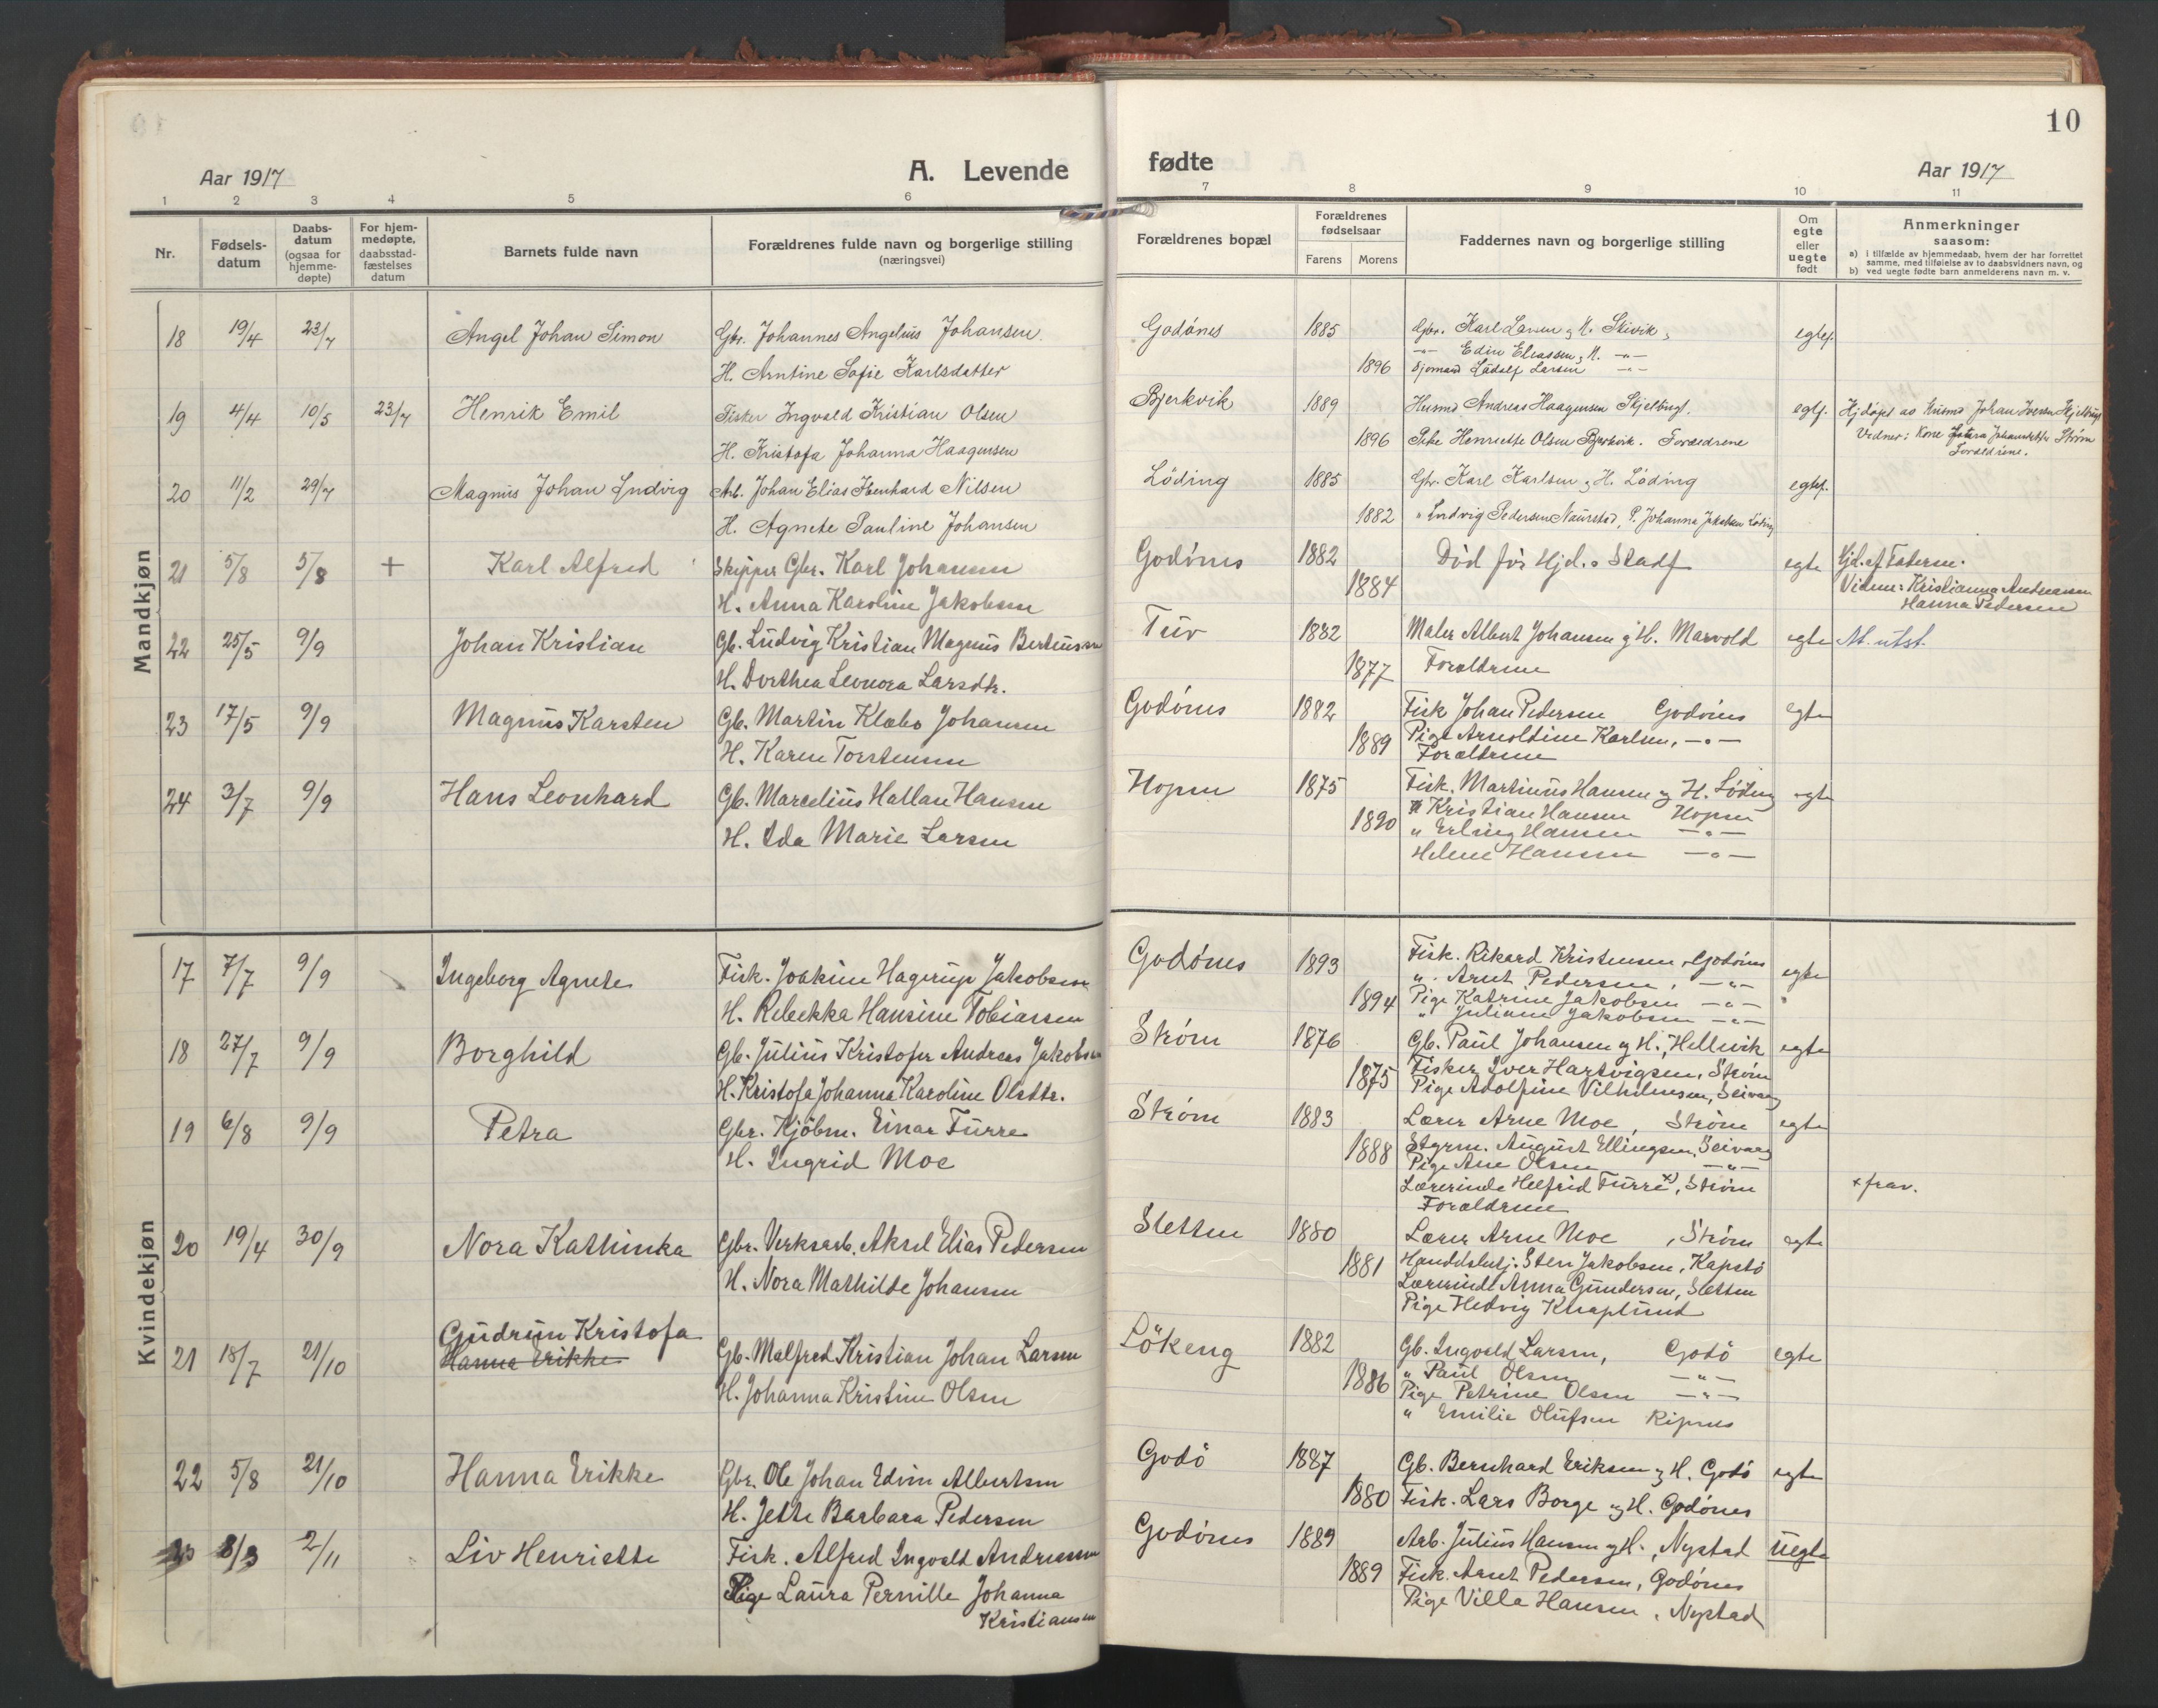 10
Aar 1917
A. Levende
fødte
Aar 1917
1 2 3 4 5 6
7 8 9 10 11
Nr.
Fødsels-
datum
Daabs-
datum
(ogsaa for
hjemme-
døpte)
For hjem-
medøpte,
daabsstad-
fæstelses
datum
Barnets fulde navn
Forældrenes fulde navn og borgerlige stilling
(næringsvei)
Forældrenes bopæl
Forældrenes
fødselsaar
Farens Morens
Faddernes navn og borgerlige stilling
Om
egte
eller
uegte
født
Anmerkninger
saasom:
a) i tilfælde av hjemmedaab, hvem der har forrettet
samme, med tilføielse av to daabsvidners navn, og
b) ved uegte fødte barn anmelderens navn m. v.
Mandkjøn
18 19/4 23/7 Angel Johan Simon Gbr. Johannes Angelius Johansen Godönes 1885 Gbr. Karl Larsen & H. Skivik, egtef.
H. Arntine Sofie Karlsdatter 1896 -"- Edin Eliassen & H. -"-
Sjømand Ludolf Larsen -"-
19 4/4 10/5 23/7 Henrik Emil Fisker Ingvald Kristian Olsen Bjerkvik 1889 Husmd Andreas Haagensen Skjelbugt. egtf. Hjdøpt av Husmd Johan Iversen Skjelbugt
H. Kristofa Johanna Haagensen 1896 Pike Henriette Olsen Bjerkvik. Foreldrene Vidner: Kone Johansdatter Strøm
Foreldrene.
20 11/2 29/7 Magnus Johan Ludvig Arb. Johan Elias Ienhard Nilsen Löding 1885 Gbr. Karl Karlsen & H. Löding egtef.
H. Agnete Pauline Johansen 1882 " Ludvig Pedersen Naurstad, P. Johanna Jakobsen Löding
21 5/8 5/8 + Karl Alfred Skipper Gbr. Karl Johansen Godönes 1882 Död för Hjd.s Stadf egte Hjd. af Faderen.
H. Anna Karoline Jakobsen 1884 Vidne: Kristianna Andreassen
Hanna Pedersen
22 25/5 9/9 Johan Kristian Gb. Ludvig Kristian Magnus Bertheussen Tuv 1882 Maler Albert Johansen & H. Marvold egte At. utst.
H. Dorthea Leonora Larsdtr. 1877 Foreldrene
23 17/5 9/9 Magnus Karsten Gb. Martin Klæbo Johansen Godönes 1882 Fisk Johan Pedersen Godönes egte
H. Karen Torstensen 1889 Pige Arnoldine Karlsen, -"-
Foreldrene
24 3/7 9/9 Hans Leonhard Gb. Marcelius Hallan Hansen Hopen 1875 Fisk. Martinus Hansen og H. Löding egte
H. Ida Marie Larsen 1890 " Kristian Hansen Hopen
" Erling Hansen -"-
Helene Hansen -"-
Kvindekjøn
17 7/7 9/9 Ingeborg Agnete Fisk. Joakim Hagerup Jakobsen Godönes 1893 Fisk. Rikard Kristensen, Godönes egte
H. Rebekka Hansine Tobiassen 1894 " Arnt Pedersen, -"-
Pige Katrine Jakobsen -"-
" Juliane Jakobsen -"-
18 27/7 9/9 Borghild Gb. Julius Kristofer Andreas Jakobsen Ström 1876 Gb. Paul Johansen og H., Hellevik egte
H. Kristofa Johanna Karoline Olsdtr. 1875 Fisker Iver Hartvigsen, Ström
Pige Adolfine Vilhelmsen, Seivaag
19 6/8 9/9 Petra Gbr. Kjöbm. Einar Furre Ström 1883 Lærer Arne Moe, Ström egte
H. Ingrid Moe 1888 Styrm. August Ellingsen, Seivaag
Pige Ane Olsen -"-
Lærerinde Helfrid Furre x), Ström x frav.
Foreldrene
20 19/4 30/9 Nora Kathinka Gbr. Verksarb. Aksel Elias Pedersen Sletten 1880 Lærer Arne Moe, Ström egte
H. Nora Mathilde Johansen 1881 Handelsbetj. Sten Jakobsen, Kapstö
Lærerinde Anna Gundersen, Sletten
Pige Hedvig Knaplund
Gudrun Kristofa
21 18/7 21/10 Hanna Erikke Gb. Malfred Kristian Johan Larsen Lökeng 1882 Gb. Ingvald Larsen, Godö egte
H. Johanna Kristine Olsen 1886 " Paul Olsen -"-
Pige Petrine Olsen -"-
" Emilie Olufsen Ripnes
22 5/8 21/10 Hanna Erikke Gbr. Ole Johan Edvin Albertsen Godö 1887 Gb. Bernhard Eriksen & H. Godö egte
H. Jette Barbara Pedersen 1880 Fisk. Lars Borge og H. Godönes
23 8/3 2/11 Liv Henriette Fisk. Alfred Ingvald Andreassen Godönes 1889 Arb. Julius Hansen og H., Nystad Uegte
Pige Laura Pernille Johanna 1889 Fisk. Arnt Pedersen, Godönes
Kristiansen Pige Villa Hansen, Nystad